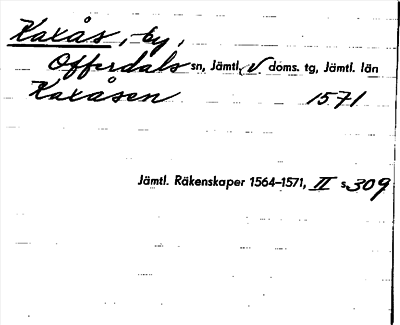 Kaxås, by,
Offerdals sn, Jämtl. V doms. tg, Jämtl. län
Kaxåsen 1571
Jämtl. Räkenskaper 1564–1571, II s. 309